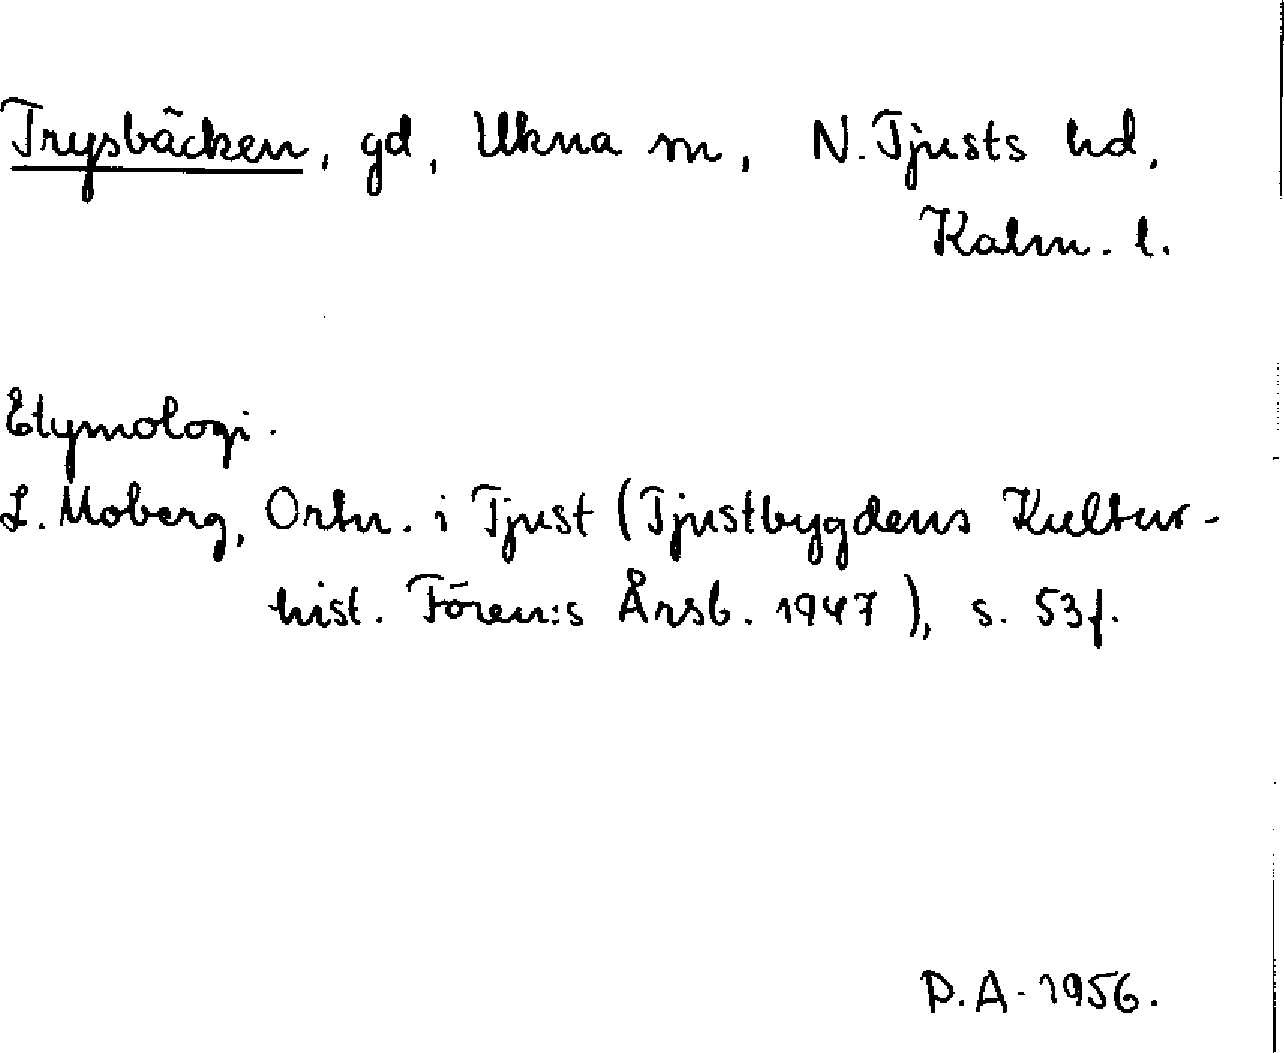 Trysbäcken, gd, Ukna sn, N. Tjusts hd,
Kalm. l.
Etymologi.
L. Moberg, Ortn. i Tjust (Tjustbygdens Kultur-
hist. Fören:s Årsb. 1947), s. 53f.
D.A. 1956.